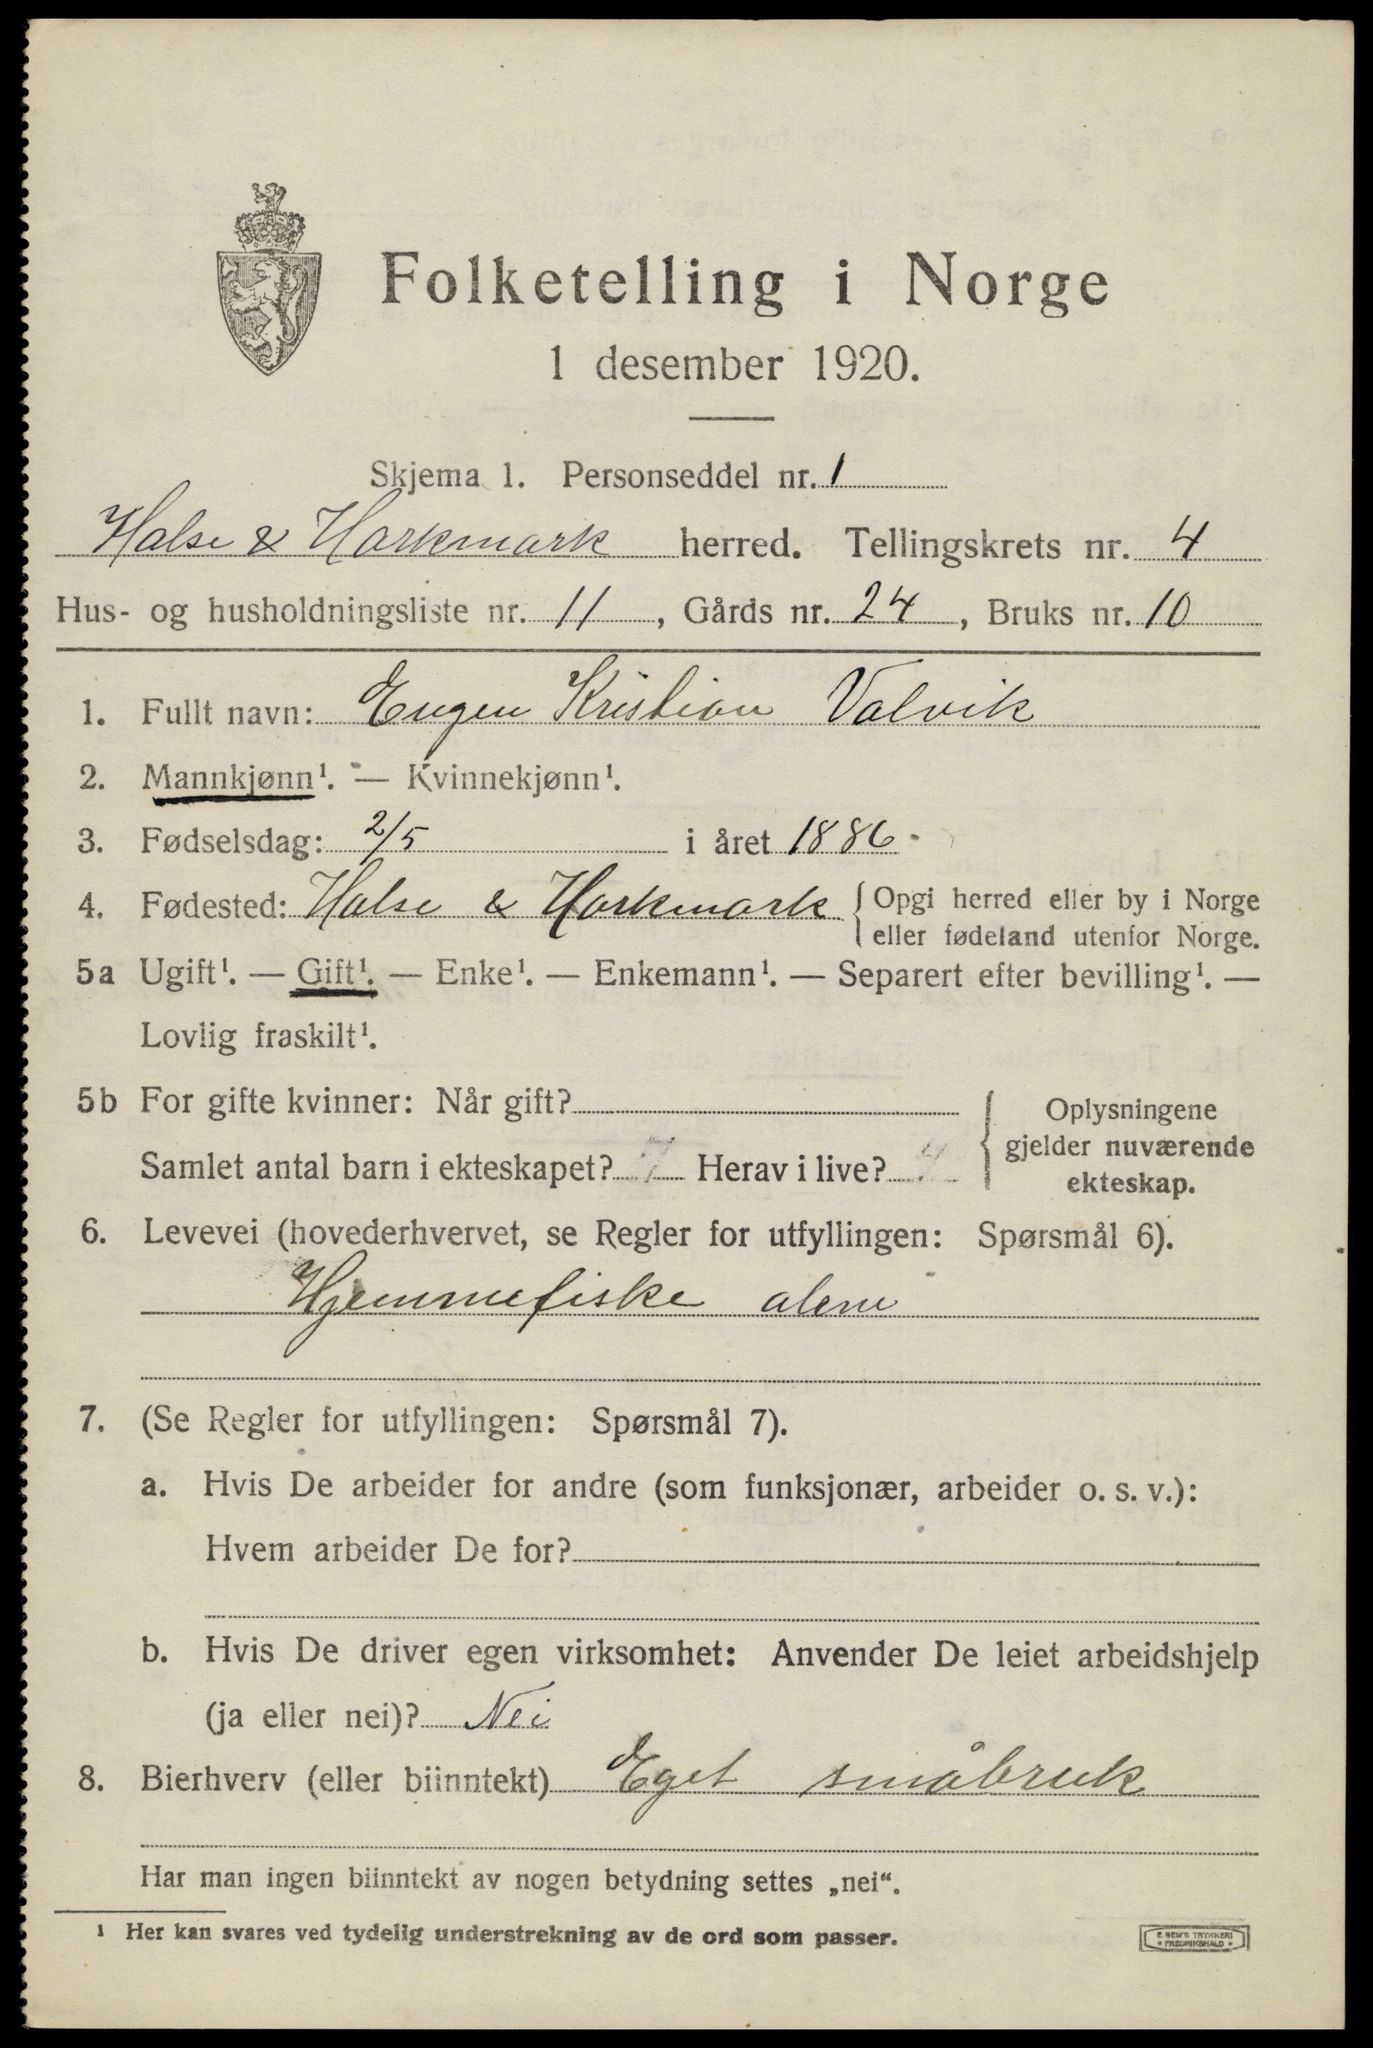 Folketelling i Norge
1 desember 1920.
Skjema 1. Personseddel nr. 1
Halse & Harkmark herred. Tellingskrets nr. 4
Hus- og husholdningsliste nr. 11, Gårds nr. 24, Bruks nr. 10
1. Fullt navn: Eugen Kristian Valvik
2. Mannkjønn¹. — Kvinnekjønn¹.
3. Fødselsdag: 2/5 i året 1886.
4. Fødested: Halse & Harkmark { Opgi herred eller by i Norge
eller fødeland utenfor Norge.
5a Ugift¹. — Gift¹. — Enke¹. — Enkemann¹. — Separert efter bevilling¹. —
Lovlig fraskilt¹.
5b For gifte kvinner: Når gift?
Samlet antal barn i ekteskapet? 7 Herav i live? 4
{ Oplysningene
gjelder nuværende
ekteskap.
6. Levevei (hovederhvervet, se Regler for utfyllingen: Spørsmål 6).
Hjemmefiske alene
7. (Se Regler for utfyllingen: Spørsmål 7).
a. Hvis De arbeider for andre (som funksjonær, arbeider o. s. v.):
Hvem arbeider De for?
b. Hvis De driver egen virksomhet: Anvender De leiet arbeidshjelp
(ja eller nei)? Nei
8. Bierhverv (eller biinntekt) Eget småbruk
Har man ingen biinntekt av nogen betydning settes „nei“.
¹ Her kan svares ved tydelig understrekning av de ord som passer.
E. SEM'S TRYKKERI
• FREDRIKSHALD •